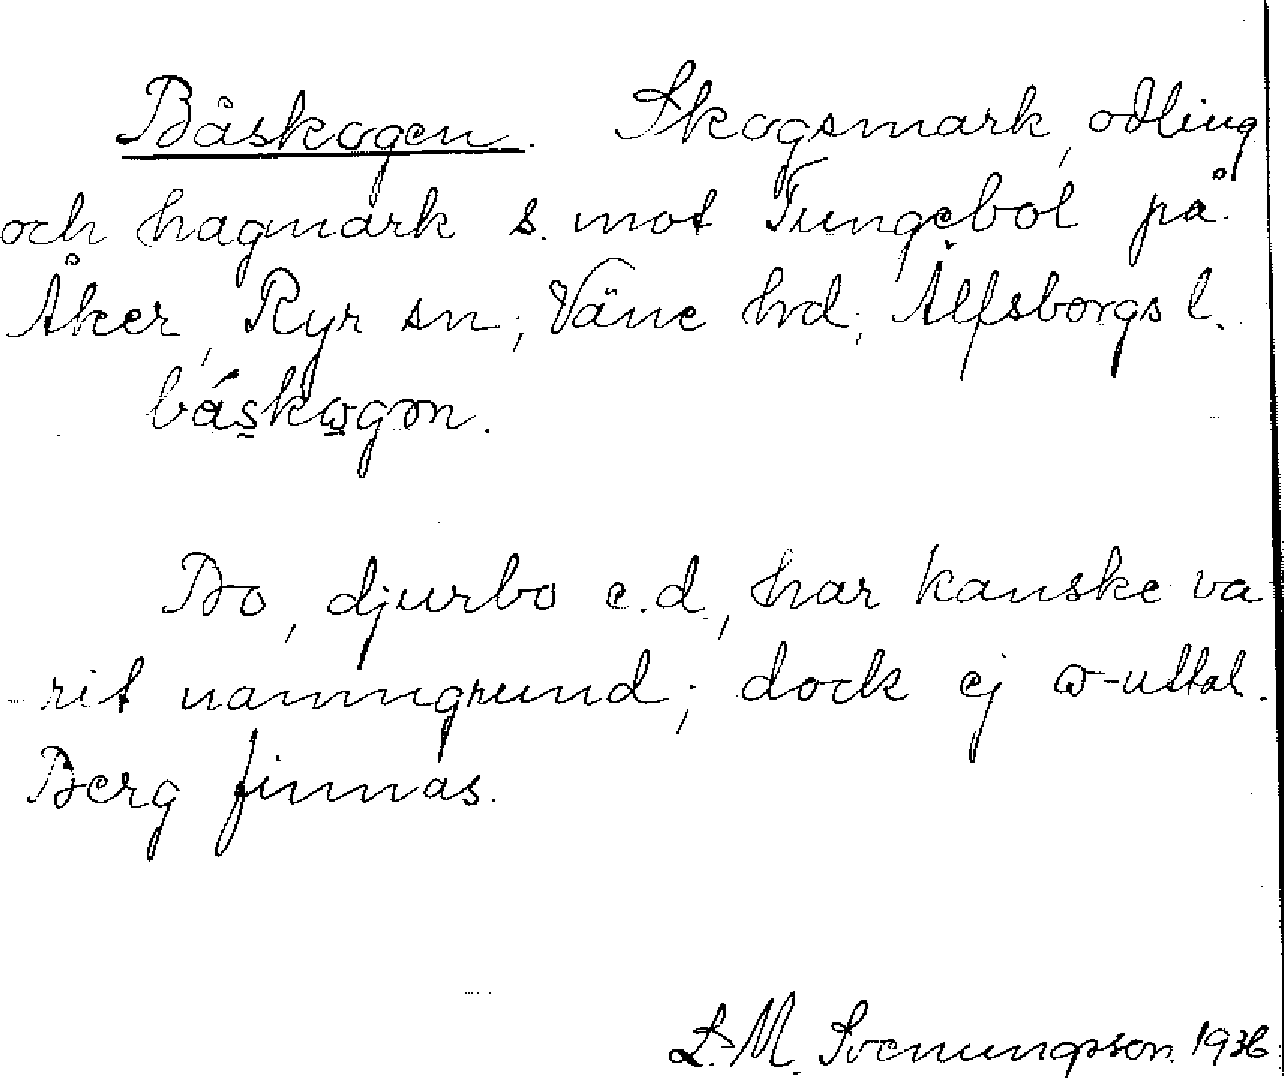 Båskogen. Skogsmark, odling
och hagmark s. mot Tungebol på
Åker, Ryr sn, Väne hd, Älfsborgs l.
båskωgən.
Bo, djurbo e.d., har kanske va
rit namngrund; dock ej ω-uttal.
Berg finnas.
L. M. Svenungsson 1936